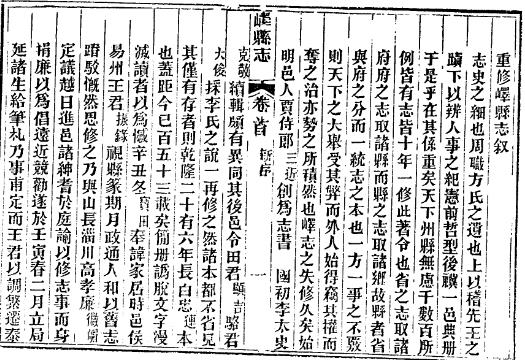 重修嶧縣志叙
志史之細也周職方氏之遺也上以稽先王之
蹟下以辨人事之紀憲前哲型後禩一邑典册
于是乎在其係重矣天下州縣無慮千數百所
例皆有志皆十年一修此著令也省之志取諸
府府之志取諸縣而縣之志取諸鄉故縣者省
與府之分而一統志之本也一方一事之不覈
則天下之大舉受其弊而外人始得竊其權而
奪之治亦勢之所積然也嶧志之失修久矣始
明邑人賈侍郎三近創為志書 國初李太史
嶧縣志 卷首 新序
克敬續輯頗有異同其後邑令田君驥吉駱君
大俊採李氏之說一再修之然諸本都不省見
其僅有存者則乾隆二十有六年長白忠璉本
也蓋距今已百五十三載矣何册譌脫文字漫
滅讀者以為憾辛丑冬寶田奉諱家居時邑侯
易州王君振錄視縣篆期月政通人和以舊志
踳駁慨然思修之乃與山長淄川高孝廉
定議越日進邑諸紳耆於庭諭以修志事而身
捐廉以為倡遠近競勸遂於壬寅春二月立局
延諸生給筆札乃事甫定而王君以調繁遷泰